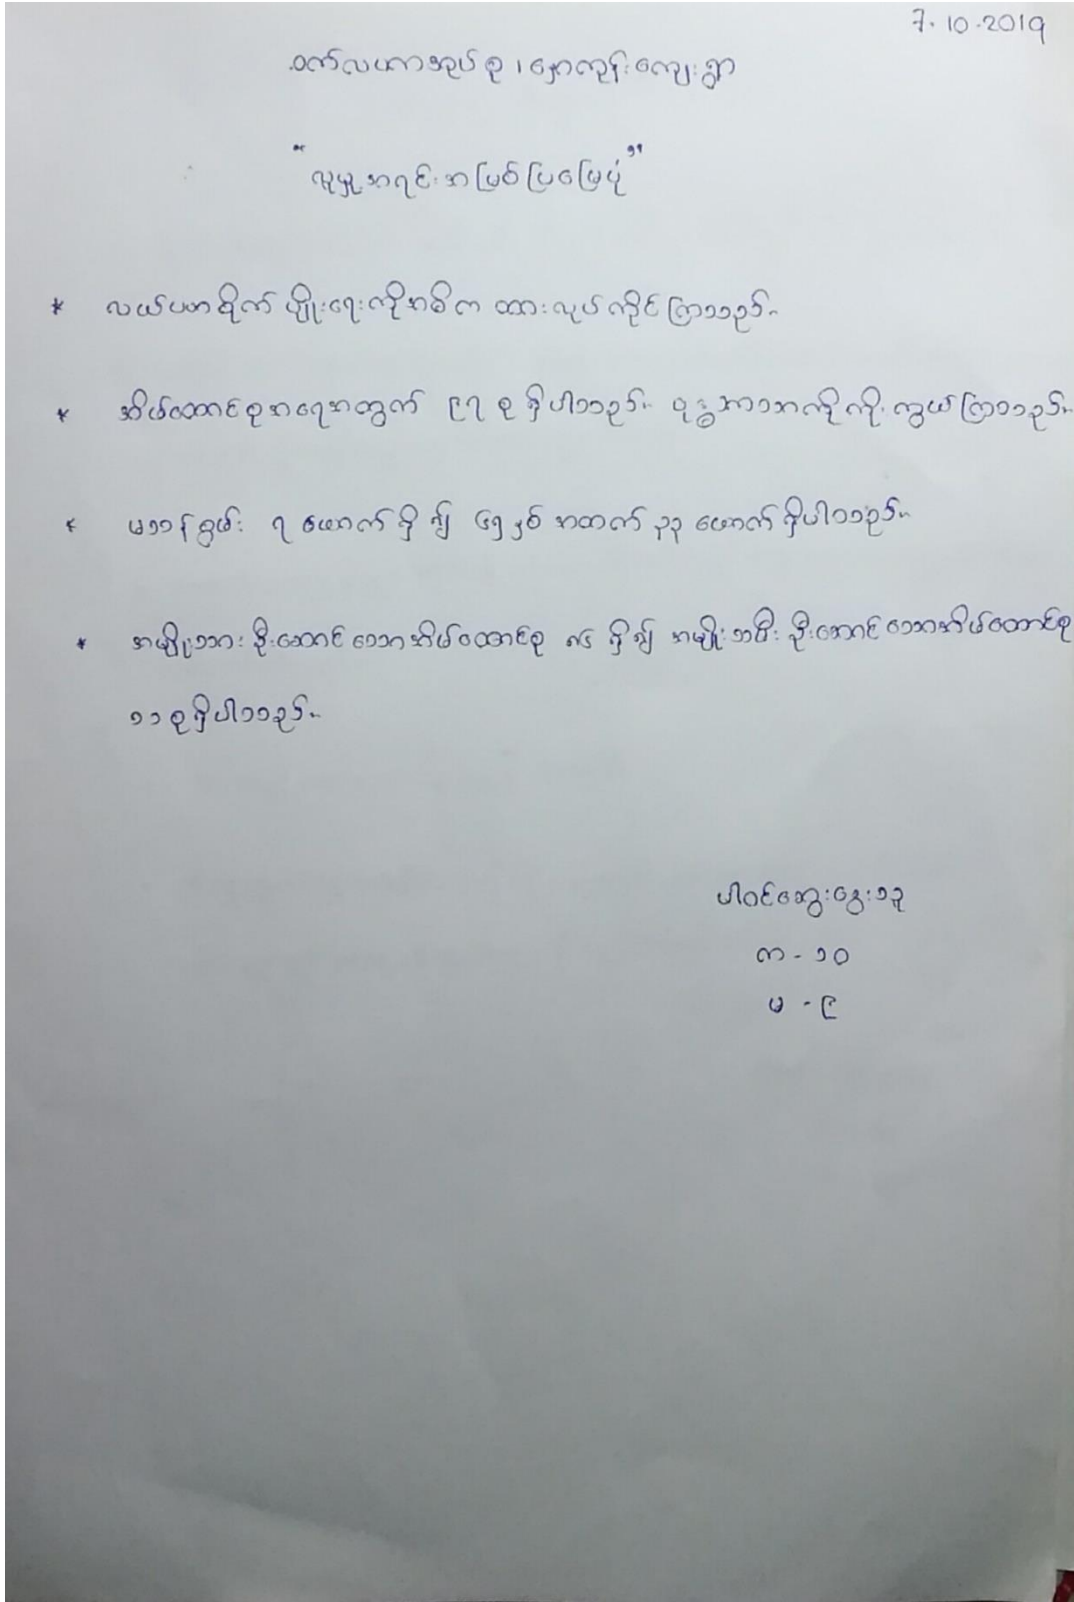 7.10.2019
ဝက်လကာအုပ်စု၊ နှောကုန်းကျေးရွာ
"လူမှုအရင်းအမြစ်ပြမြေပုံ"
* လယ်ယာစိုက်ပျိုးရေးကိုအဓိကထားလုပ်ကိုင်ကြသည်။
* အိမ်ထောင်စုအရေအတွက် ၉၇ စု ရှိပါသည်။ ဗုဒ္ဓဘာသာကိုကိုးကွယ်ကြသည်။
* မသန်စွမ်း ၇ ယောက်ရှိ၍ ၆၅နှစ် အထက် ၃၃ ယောက်ရှိပါသည်။
* အမျိုးသားဦးဆောင်သောအိမ်ထောင်စု ၈၆ ရှိ၍ အမျိုးသမီးဦးဆောင်သောအိမ်ထောင်စု
၁၁ စုရှိပါသည်။
ပါဝင်ဆွေးနွေးသူ
က - ၁၀
မ - ၉